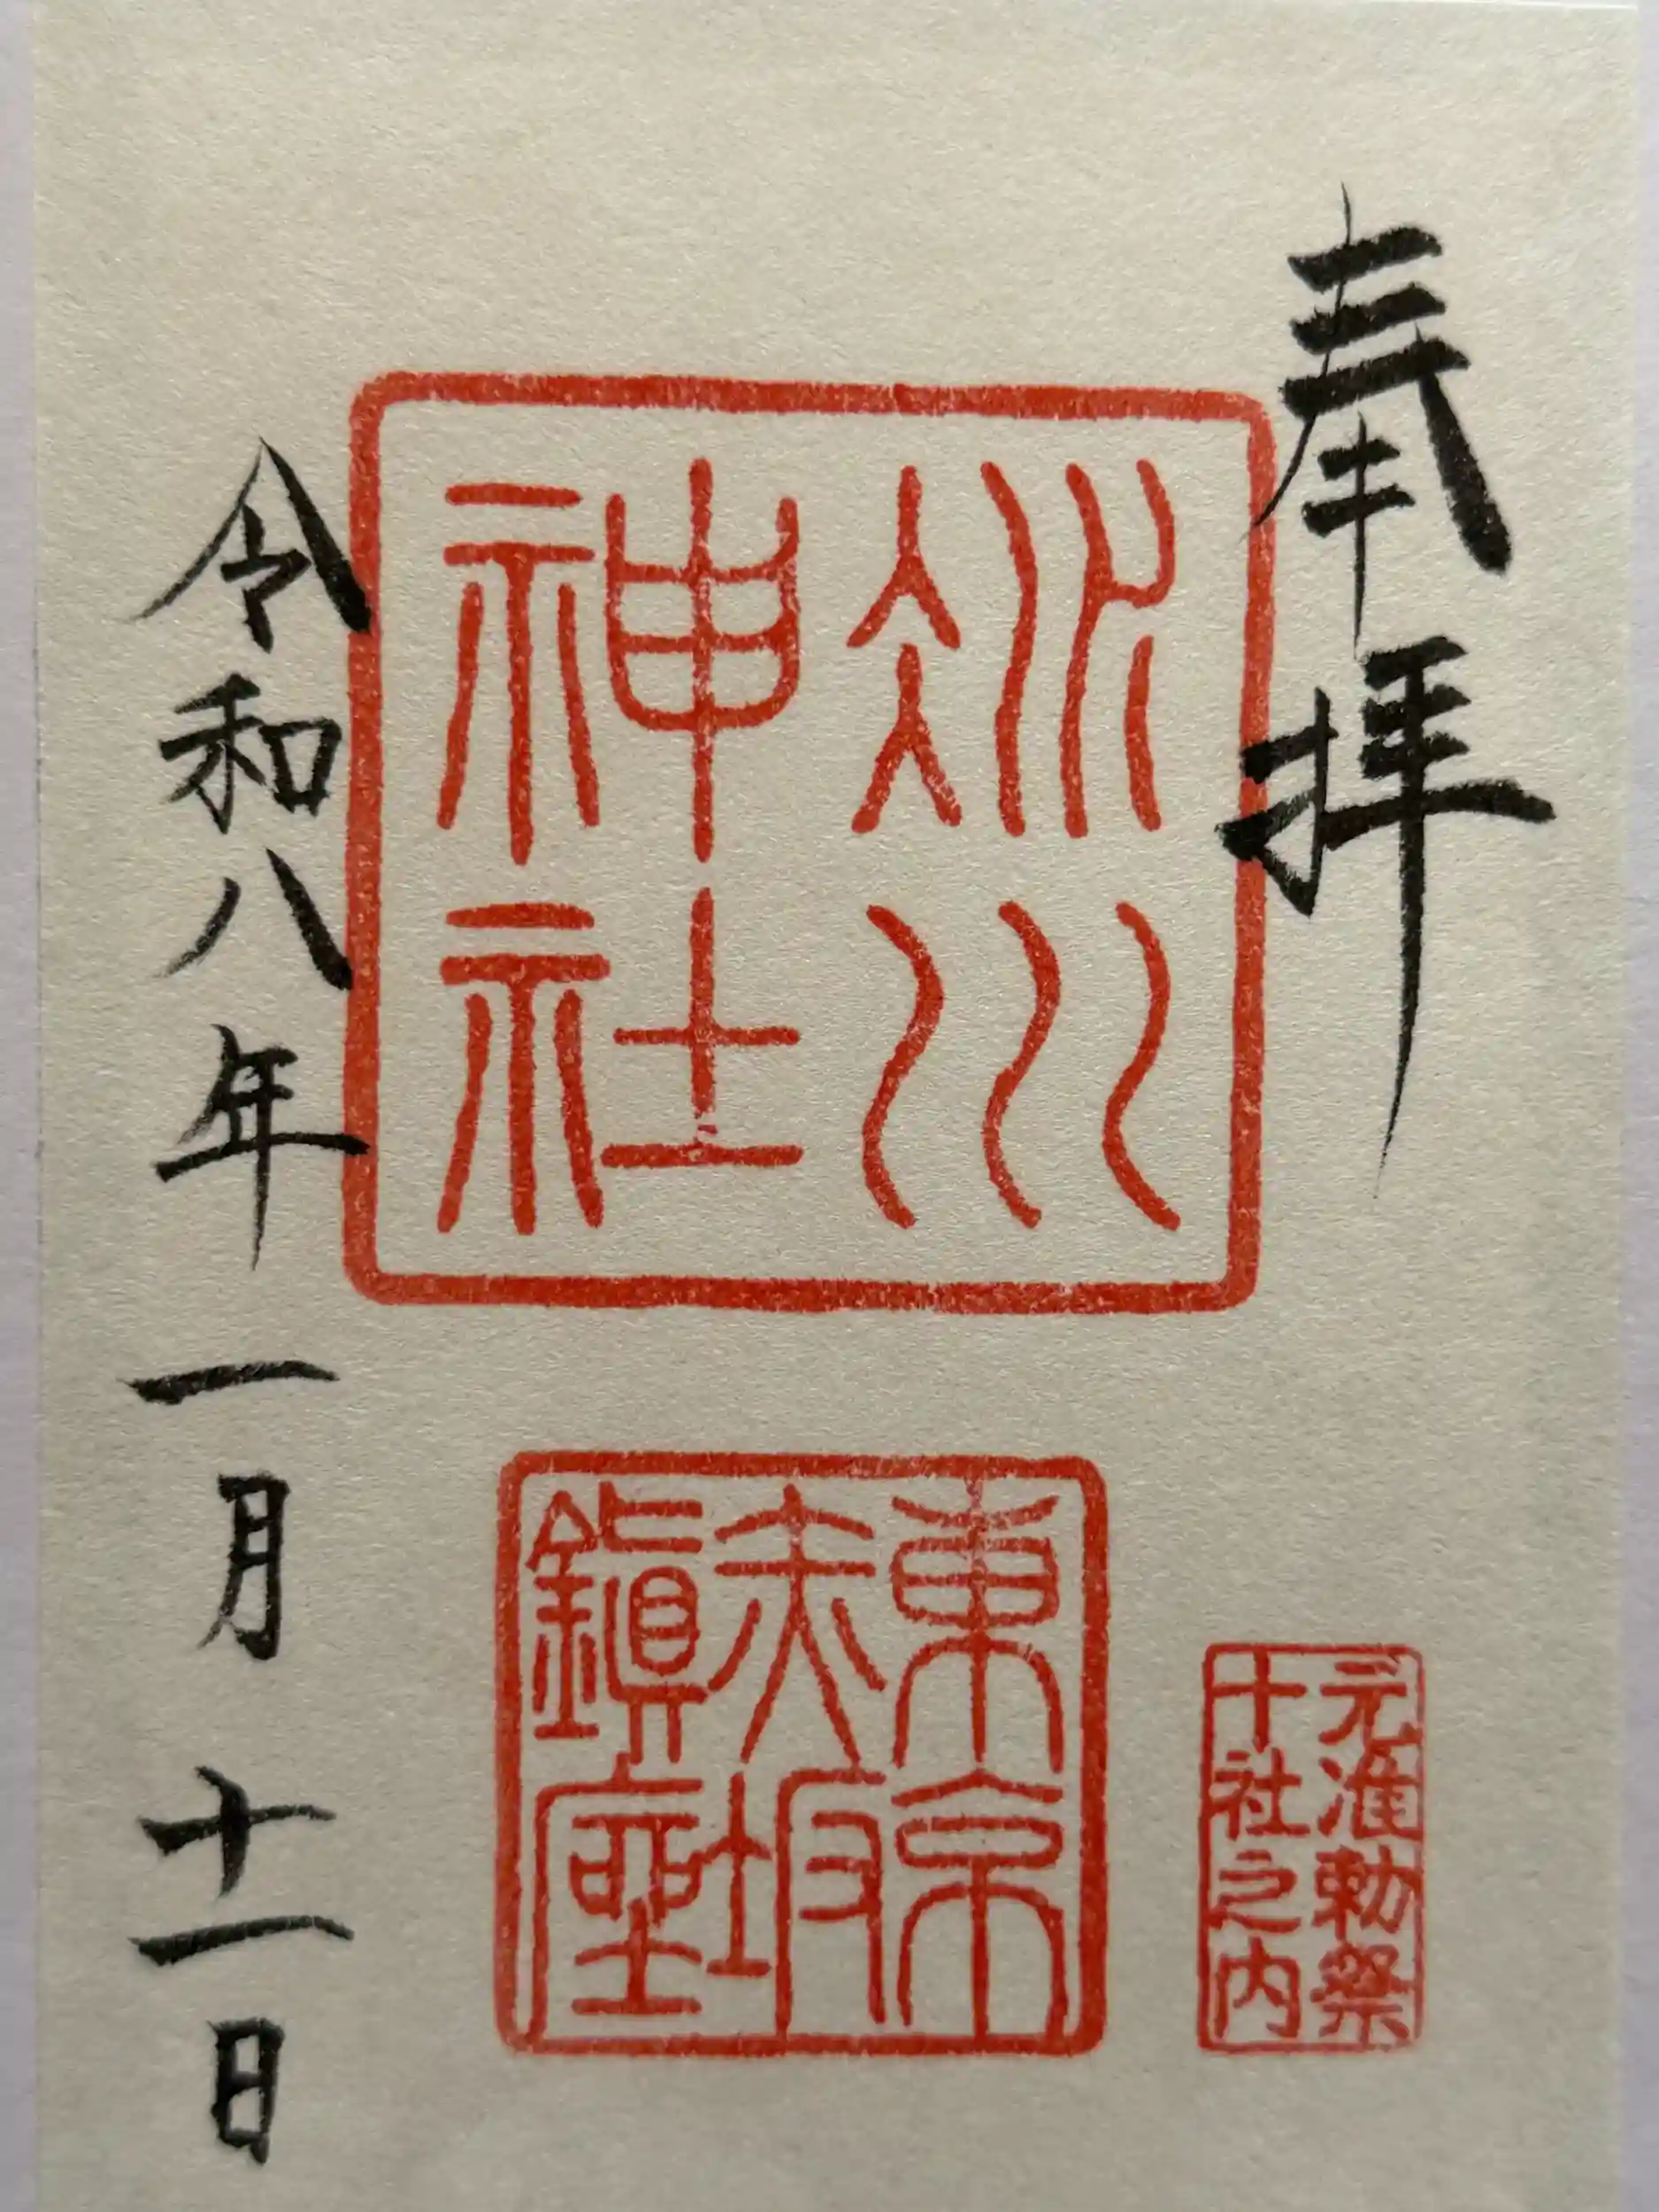 奉拝
氷川
神社
元准勅祭
十社之内
東京
赤坂
鎮座
令和八年一月十一日